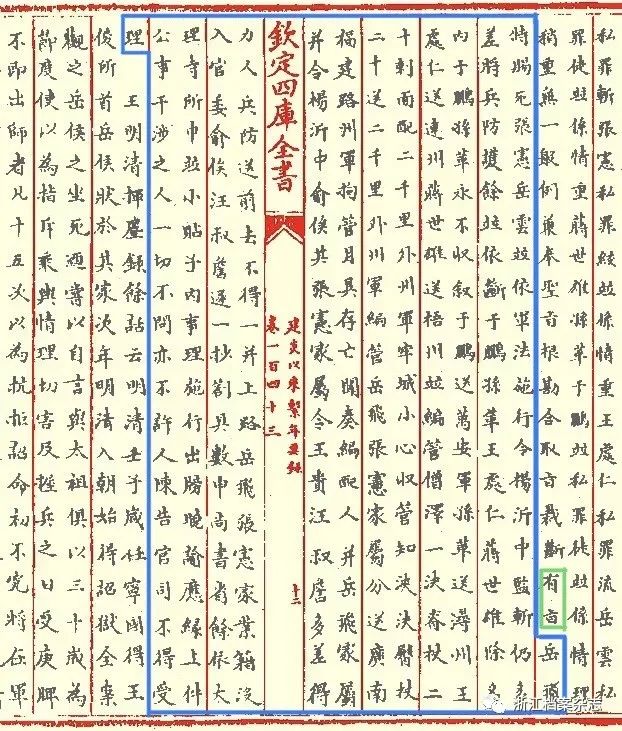 私罪斬張憲私罪絞並係情重王處仁私罪流岳雲私
罪徒並係情重蔣世雄孫革于鵬並私罪徒並係情理
稍重無一般例兼奉聖旨根勘合取旨裁斷有旨岳飛
特賜死張憲岳雲並依軍法施行令楊沂中監斬仍多
差將兵防護餘並依斷于鵬孫革王處仁蔣世雄除名
内于鵬孫革永不收叙于鵬送萬安軍孫革送潯州王
處仁送連州蔣世雄送梧州並編管僧澤一決脊杖二
十刺面配二千里外州軍牢城小心收管知浹決臀杖
二十送二千里外州軍編管岳飛張憲家屬分送廣南
福建路州軍拘管月具存亡聞奏編配人并岳飛家屬
并令楊沂中俞俟其張憲家屬令王貴汪叔詹多差得
欽定四庫全書
建炎以來繫年要録
卷一百四十三
十二
力人兵防送前去不得一并上路岳飛張憲家業籍沒
入官委俞俟汪叔詹逐一抄劄具數申尚書省餘依大
理寺所申並小貼子内事理施行出牓曉諭應緣上件
公事干涉之人一切不問亦不許人陳告官司不得受
理 王明清揮麈録餘話云明清壬子歲任寧國得王
俊所首岳侯狀於其家次年明清入朝始得詔獄全案
觀之岳侯之坐死迺嘗以自言與太祖俱以三十歲為
節度使以為指斥乘輿情理切害及握兵之日受庚牌
不即出師者凡十五次以為抗拒詔命初不究將在軍
浙江档案杂志